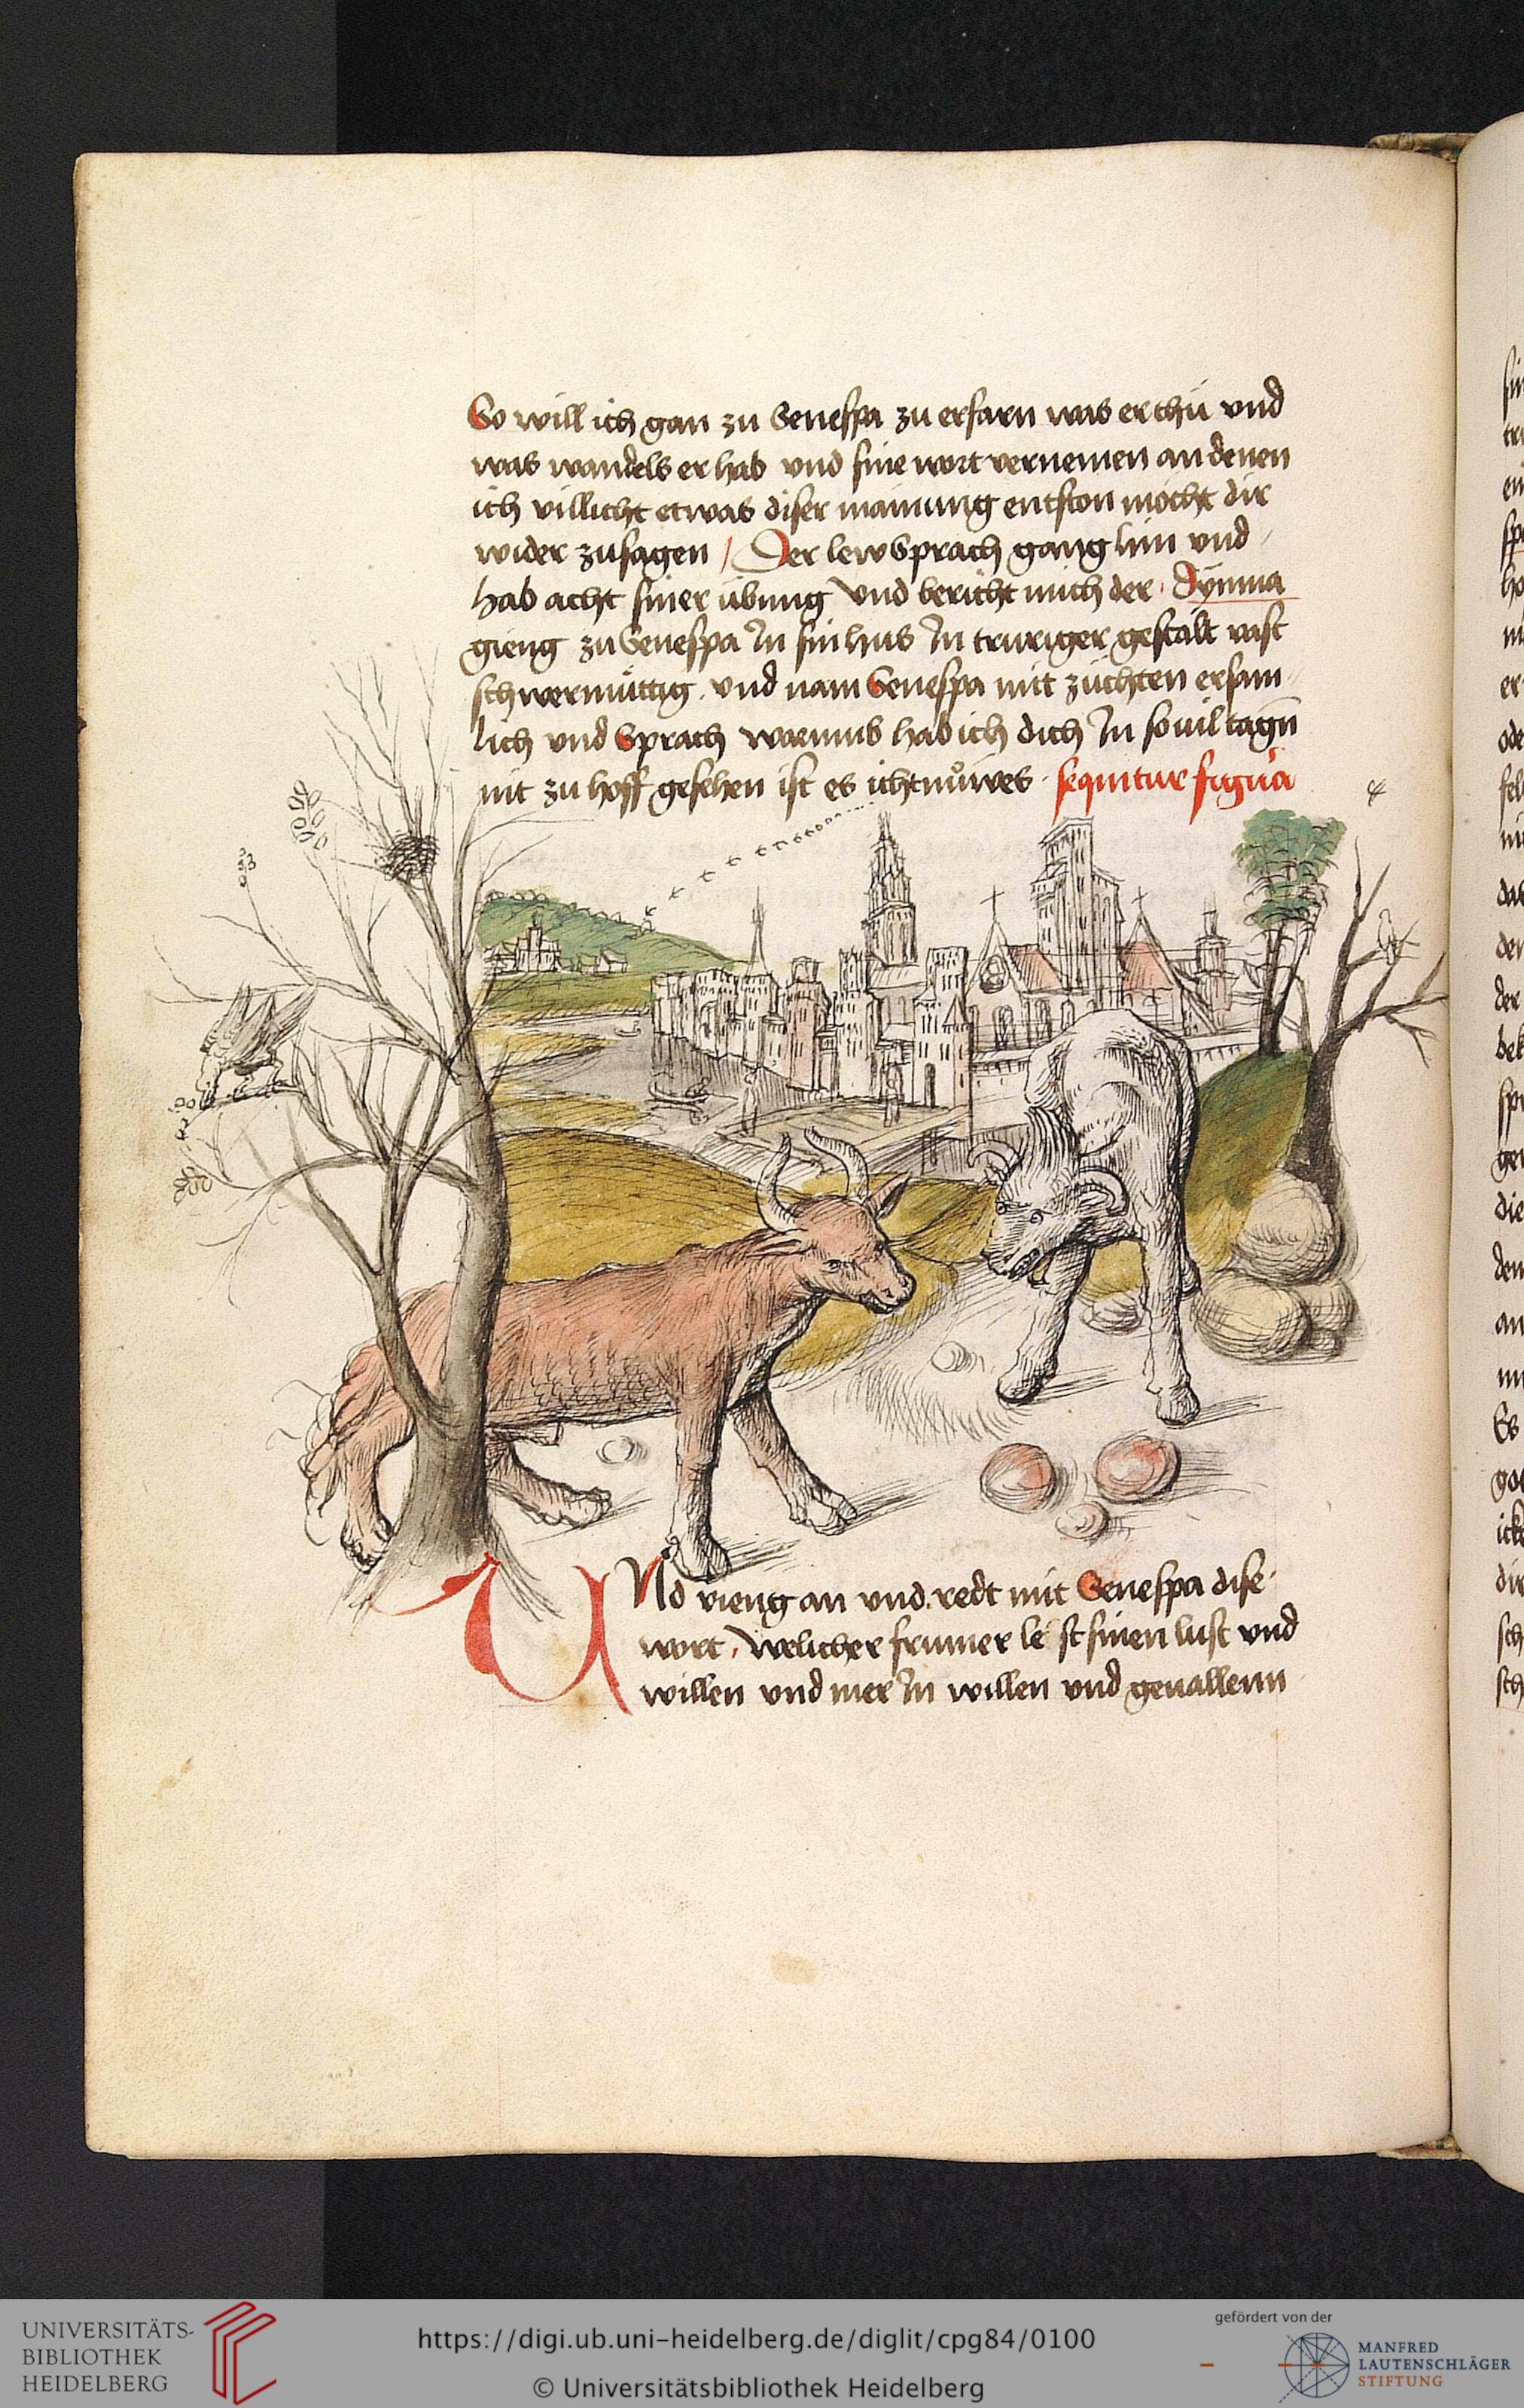 So will ich gan zu Senespa zu erfarn was er thü und
was wandels er hab und sine wort vernemen an denen
ich villicht etwas diser mainung entston möcht dir
wider zusagen / Der lew Sprach gang hin und
hab acht siner übung und bericht mich der Dymna
gieng zu Senespa In sin hus In truriger gestalt vast
schwermüttig und nam Senespa mit züchten ersam
lich und Sprach warumb hab ich dich In souil tagn̄
nit zu hoff gesehen ist es icht nüwes sequitur figura
UNd vieng an und redt mit Senespa dise
wort welicher frumer le st sinen lust und
willen und mer In willen und geuallenn
UNIVERSITÄTS-
BIBLIOTHEK
HEIDELBERG
https://digi.ub.uni-heidelberg.de/diglit/cpg84/0100
© Universitätsbibliothek Heidelberg
gefördert von der
MANFRED
LAUTENSCHLÄGER
STIFTUNG